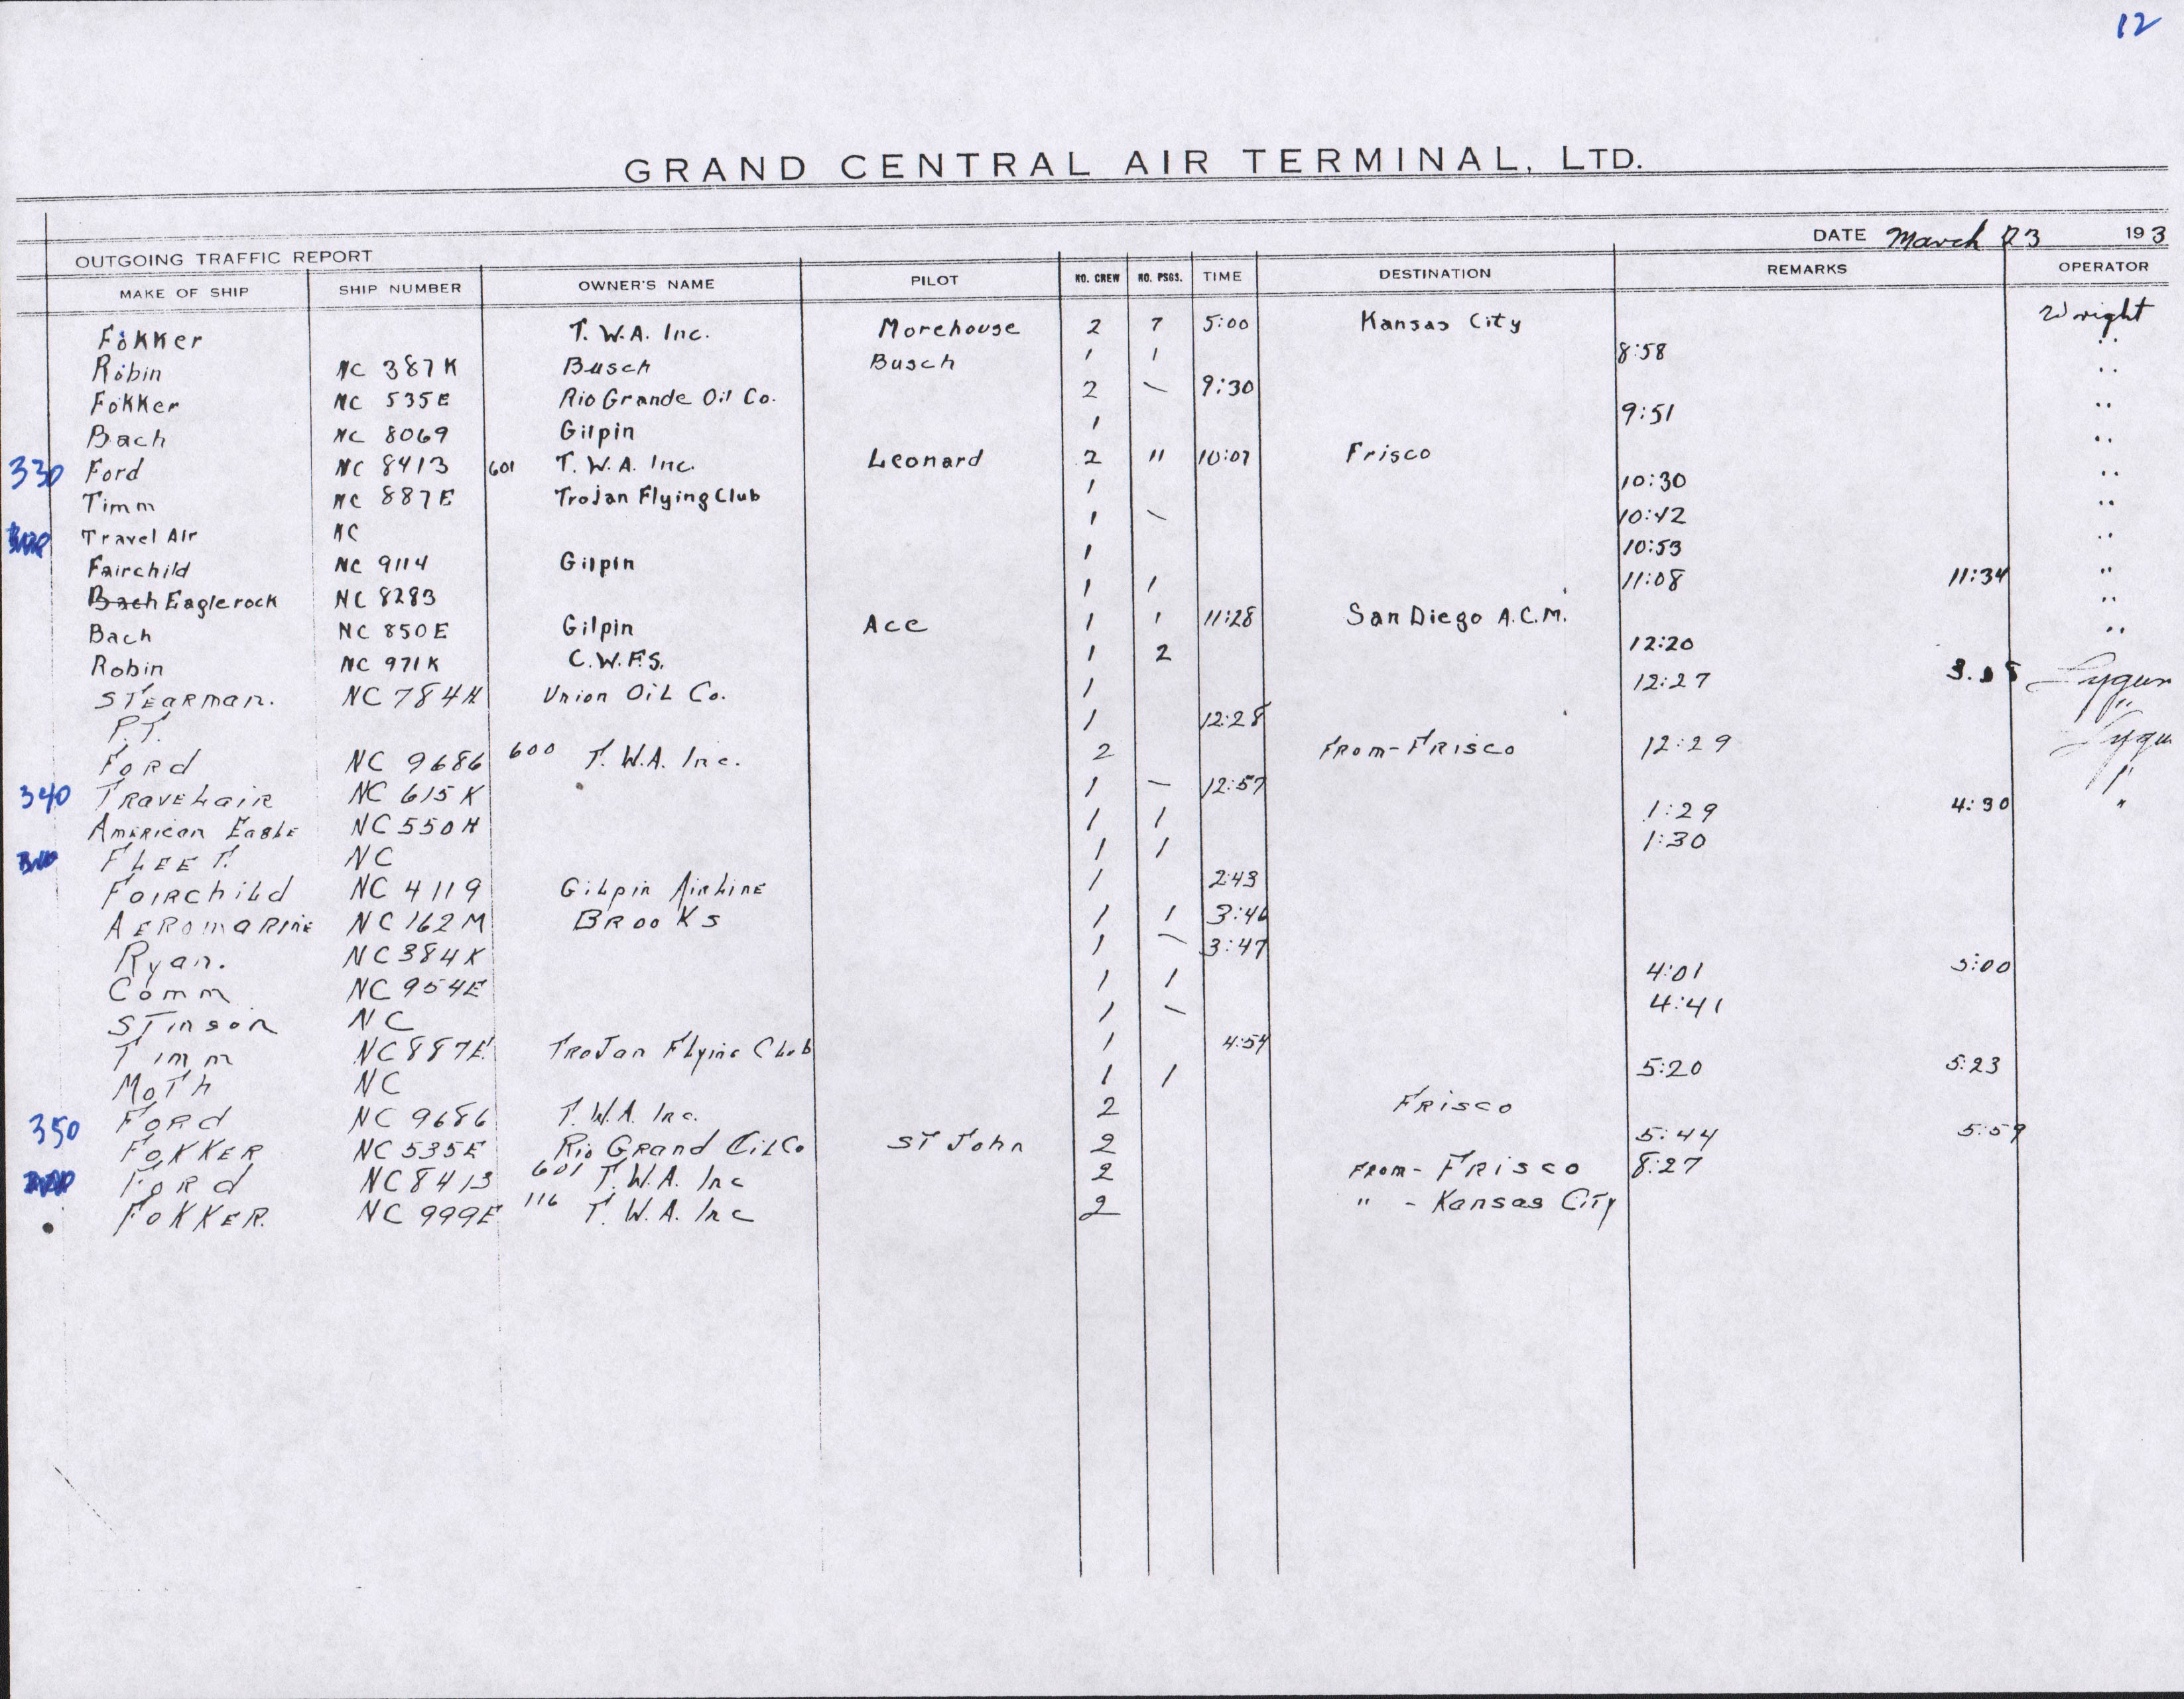 12
GRAND CENTRAL AIR TERMINAL, LTD.
DATE March 23 193
OUTGOING TRAFFIC REPORT
MAKE OF SHIP SHIP NUMBER OWNER'S NAME PILOT NO. CREW NO. PSGS. TIME DESTINATION REMARKS OPERATOR
Fokker T.W.A. Inc. Morehouse 2 7 5:00 Kansas City Wright
Robin NC 387K Busch Busch 1 1 8:58 "
Fokker NC 535E Rio Grande Oil Co. 2 — 9:30 "
Bach NC 8069 Gilpin 1 9:51 "
330 Ford NC 8413 601 T.W.A. Inc. Leonard 2 11 10:07 Frisco "
Timm NC 887E Trojan Flying Club 1 10:30 "
Travel Air NC 1 — 10:42 "
Fairchild NC 9114 Gilpin 1 10:53 "
Bach Eaglerock NC 8283 1 1 11:08 11:34 "
Bach NC 850E Gilpin Ace 1 1 11:28 San Diego A.C.M. "
Robin NC 971K C.W.F.S. 1 2 12:20 "
STearman. NC 784H Union Oil Co. 1 12:27
P.T. 1 12:28 "
Ford NC 9686 600 T.W.A. Inc. 2 From-Frisco 12:29
340 Travelair NC 615K 1 — 12:57 "
American Eagle NC 550H 1 1 1:29 4:30 "
FLEET. NC 1 1 1:30
Fairchild NC 4119 Gilpin Airline 1 2:43
Aeromarine NC 162M Brooks 1 1 3:46
Ryan. NC 384K 1 — 3:47
Comm NC 954E 1 1 4:01 5:00
STinson NC 1 — 4:41
Timm NC 887E Trojan Flying Club 1 4:54
MoTh NC 1 1 5:20 5:23
350 Ford NC 9686 T.W.A. Inc. 2 Frisco
Fokker NC 535E Rio Grand Oil Co ST John 2 5:44 5:59
Ford NC 8413 601 T.W.A. Inc 2 From-Frisco 8:27
Fokker. NC 999E 116 T.W.A. Inc 2 " - Kansas City